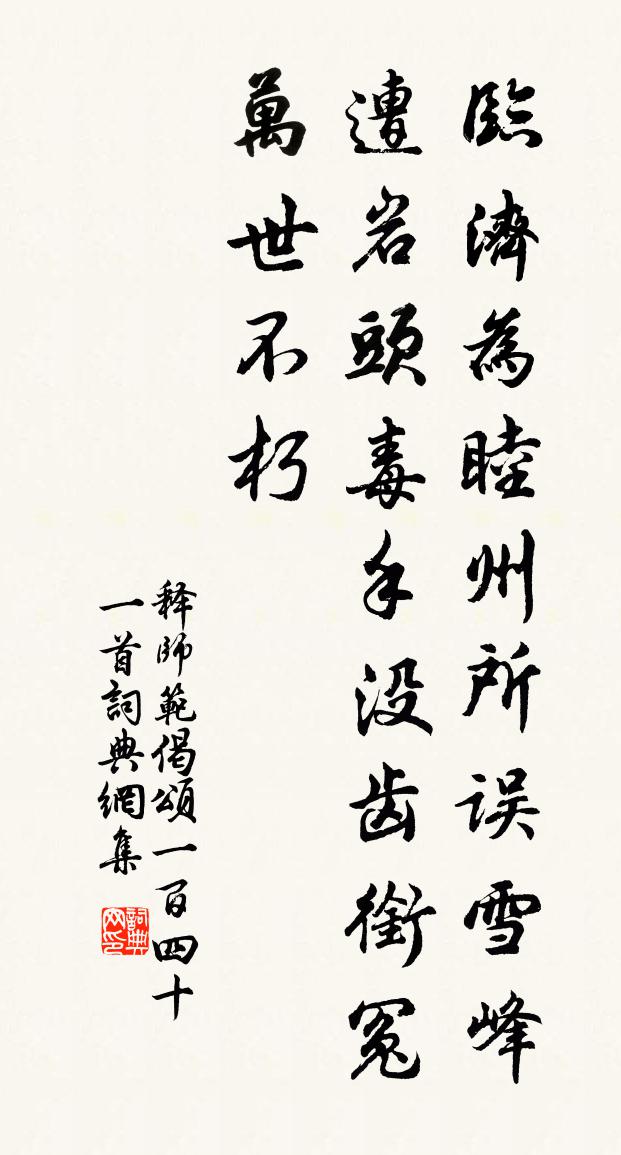 臨濟為睦州所误雪峰
遭岩頭毒手没齿銜冤
萬世不朽
释師範偈頌一百四十
一首詞典網集
詞典网印